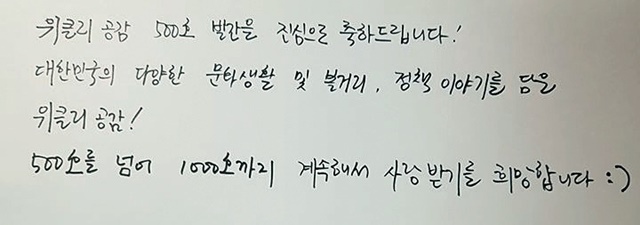 위클리 공감 500호 발간을 진심으로 축하드립니다!
대한민국의 다양한 문화생활 및 볼거리, 정책 이야기를 담은
위클리 공감!
500호를 넘어 1000호까지 계속해서 사랑받기를 희망합니다 :)